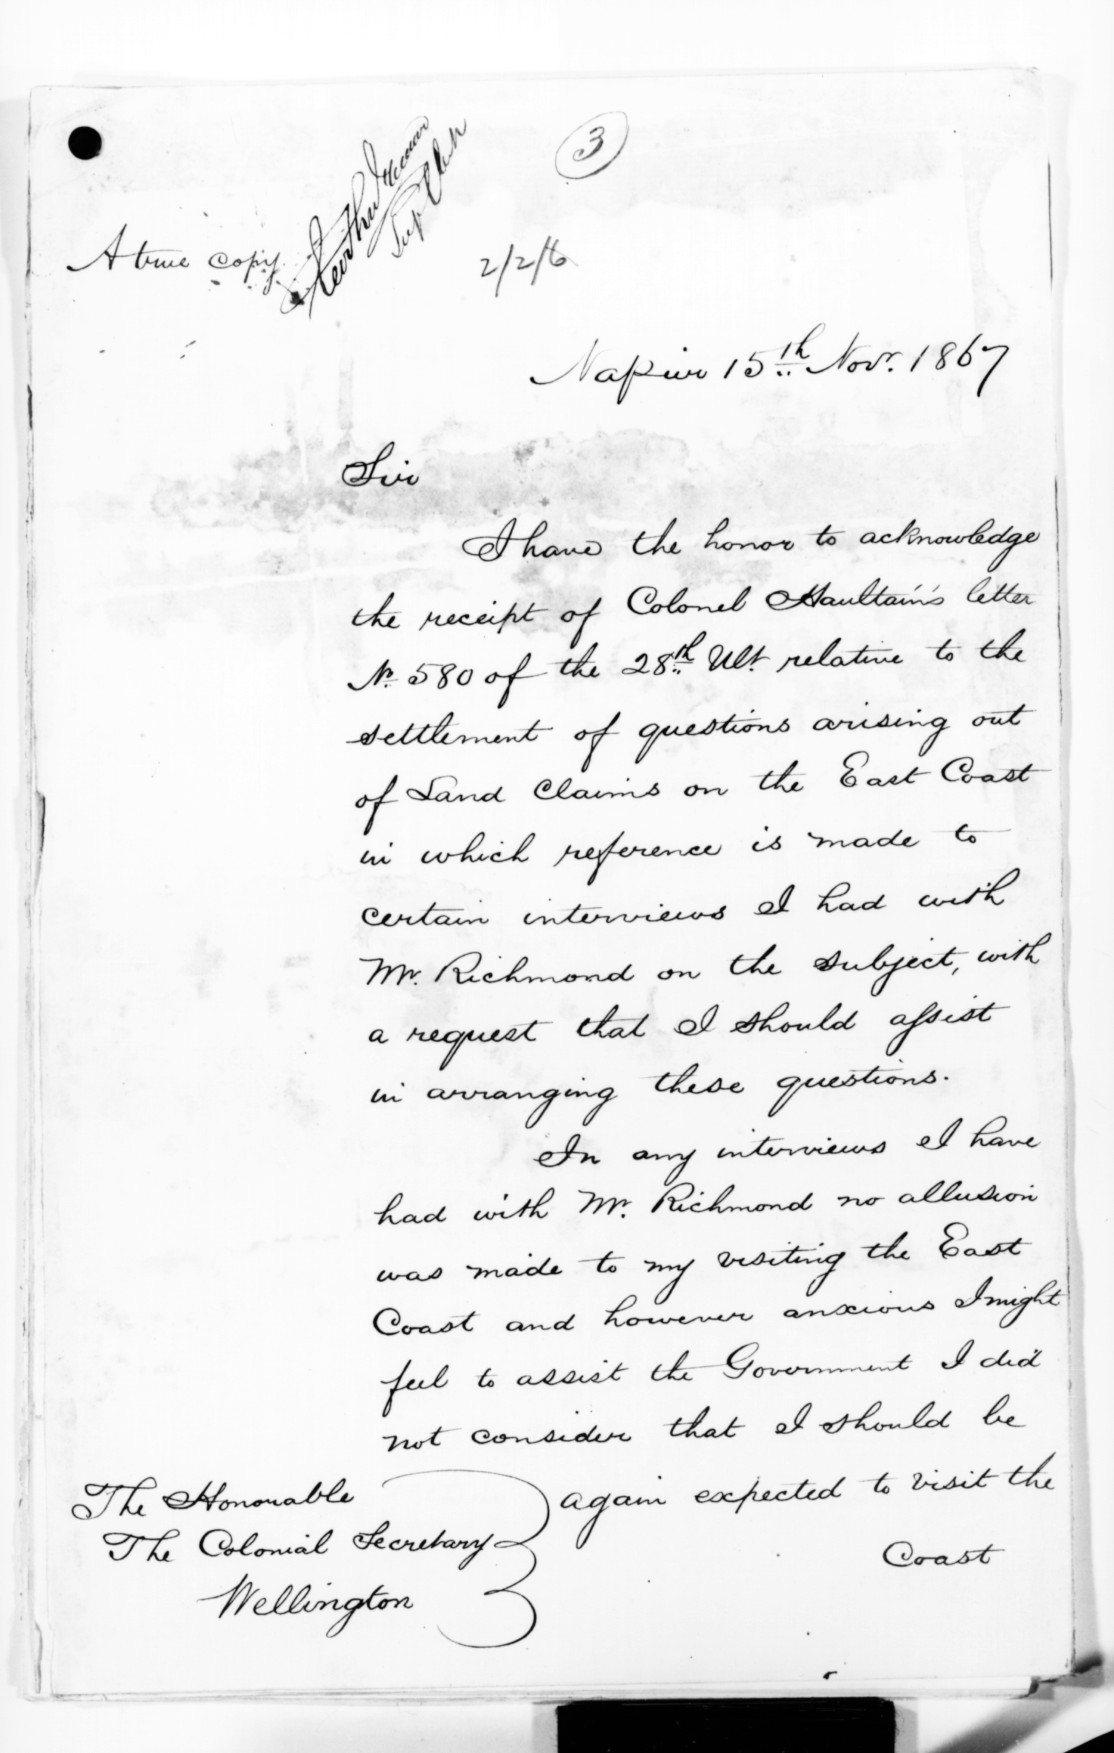 3
A true copy
2/2/6
Napier 15th Novr. 1867
Sir
I have the honor to acknowledge
the receipt of Colonel Haultain's letter
No. 580 of the 28th Ult. relative to the
settlement of questions arising out
of Land Claims on the East Coast
in which reference is made to
certain interviews I had with
Mr. Richmond on the subject, with
a request that I should assist
in arranging these questions.
In any interviews I have
had with Mr. Richmond no allusion
was made to my visiting the East
Coast and however anxious I might
feel to assist the Government I did
not consider that I should be
again expected to visit the
Coast
The Honorable
The Colonial Secretary
Wellington